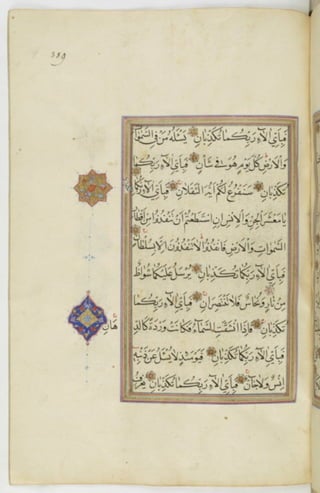 فَبِأَيِّ آلَاءِ رَبِّكُمَا تُكَذِّبَانِ يَسْئَلُهُ مَنْ فِي السَّمٰوَاتِ
وَالْاَرْضِ كُلَّ يَوْمٍ هُوَ فِي شَاْنٍ فَبِأَيِّ آلَاءِ رَبِّكُمَا
تُكَذِّبَانِ سَنَفْرُغُ لَكُمْ اَيُّهَ الثَّقَلَانِ فَبِأَيِّ آلَاءِ رَبِّكُمَا
يَا مَعْشَرَ الْجِنِّ وَالْاِنْسِ اِنِ اسْتَطَعْتُمْ اَنْ تَنْفُذُوا مِنْ اَقْطَارِ
السَّمٰوَاتِ وَالْاَرْضِ فَانْفُذُوا لَا تَنْفُذُونَ اِلَّا بِسُلْطَانٍ
فَبِأَيِّ آلَاءِ رَبِّكُمَا تُكَذِّبَانِ يُرْسَلُ عَلَيْكُمَا شُوَاظٌ
مِنْ نَارٍ وَنُحَاسٌ فَلَا تَنْتَصِرَانِ فَبِأَيِّ آلَاءِ رَبِّكُمَا
تُكَذِّبَانِ فَاِذَا انْشَقَّتِ السَّمَاءُ فَكَانَتْ وَرْدَةً كَالدِّ هَانِ
فَبِأَيِّ آلَاءِ رَبِّكُمَا تُكَذِّبَانِ فَيَوْمَئِذٍ لَا يُسْئَلُ عَنْ ذَنْبِهِ
اِنْسٌ وَلَا جَانٌّ فَبِأَيِّ آلَاءِ رَبِّكُمَا تُكَذِّبَانِ يُعْرَفُ